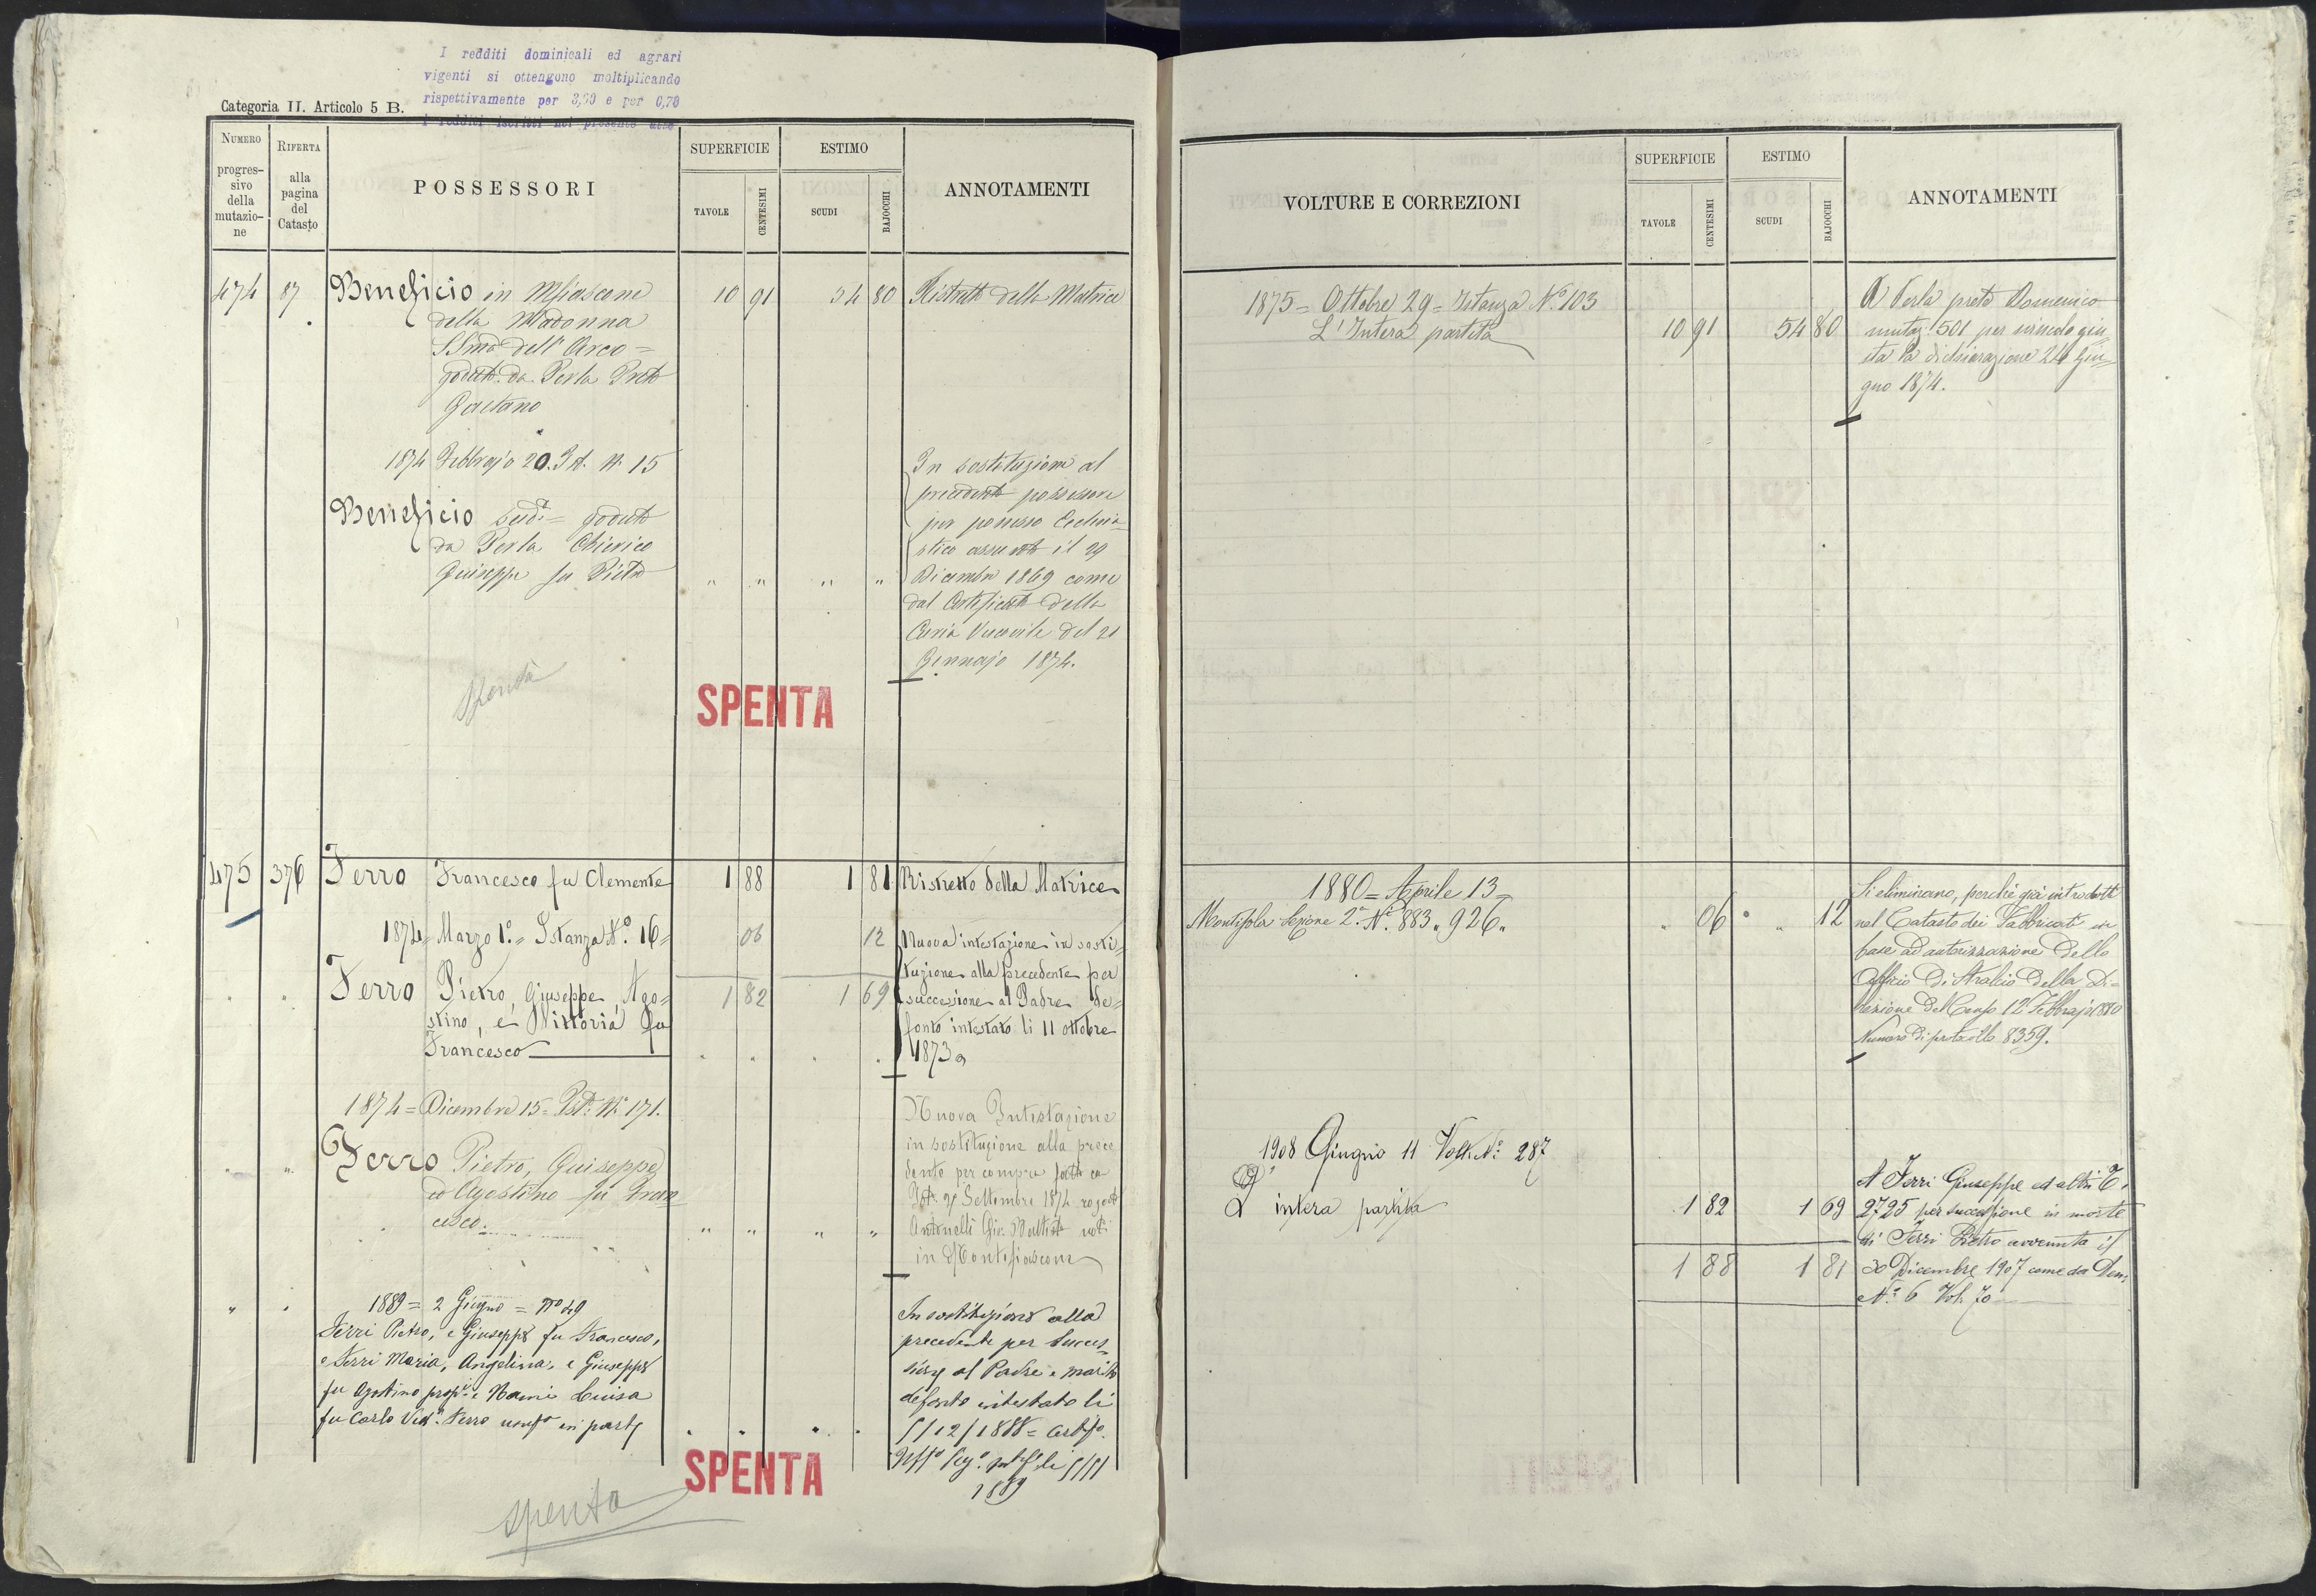 I redditi dominicali ed agrari
vigenti si ottengono moltiplicando
rispettivamente per 3,60 e per 0,78
i redditi iscritti nel presente
Categoria II. Articolo 5 B.
NUMERO progres-sivo della mutazio-ne
RIFERTA alla pagina del Catasto
POSSESSORI
SUPERFICIE
TAVOLE
CENTESIMI
ESTIMO
SCUDI
BAJOCCHI
ANNOTAMENTI
474 87 Beneficio in Mfiascone 10 91 54 80 Ristretto della Matrice
della Madonna
SSma dell' Arco =
goduto da Perla Prete
Gaetano
1874 Febbrajo 20. Ist. N. 15
Beneficio sudo = goduto
da Perla Chierico
Giuseppe fu Pietro " " " "
In sostituzione al
precedente possessore
per possesso Ecclesia
stico assunto il 29
Dicembre 1869 come
dal Certificato della
Curia Vescovile del 21
Gennajo 1874.
Spenta
SPENTA
475 376 Ferro Francesco fu Clemente 1 88 1 81 Ristretto della Matrice
1874 = Marzo 1º = Istanza Nº 16 = 06 12
Ferro Pietro, Giuseppe, Ago= 1 82 1 69
stino, e Vittoria fu
Francesco
Nuova intestazione in sosti=
tuzione alla precedente per
successione al Padre de=
fonto intestato li 11 ottobre
1873
1874 = Dicembre 15 = Ista Nº 171.
Ferro Pietro, Giuseppe
ed Agostino fu Fran=
cesco. " " " "
Nuova Intestazione
in sostituzione alla prece
dente per compra fatta co
Ist. 29 Settembre 1874 rogato
Antonelli Gio. Battista not.
in Montefiascone
1889 = 2 Giugno = Nº 49
Ferri Pietro, e Giuseppe fu Francesco,
e Ferri Maria, Angelina, e Giuseppe
fu Agostino propri e Nami Luisa
fu Carlo Veda Ferro usufo in parte
In sostituzione alla
precedente per succes=
sione al Padre e marito
defonto intestato li
5/12/1888 = Certifo.
1889
SPENTA
spenta
VOLTURE E CORREZIONI
SUPERFICIE
TAVOLE
CENTESIMI
ESTIMO
SCUDI
BAJOCCHI
ANNOTAMENTI
1875 = Ottobre 29 = Istanza Nº 103
L' Intera partita 10 91 54 80
A Perla prete Domenico
mutaz. 501 per vincolo giu
sta la dichiarazione 24 Giu=
gno 1874.
1880 = Aprile 13 =
Montisola Sezione 2ª Nº 883 " 926 " " 06 " 12
Si eliminano, perchè già introdotti
nel Catasto dei Fabbricati in
base ad autorizzazione dello
Officio di Stralcio della Di=
rezione del Censo 12 Febbrajo 1880
Numero di protocollo 8359.
1908 Giugno 11 Volt. Nº 287
L' intera partita 1 82 1 69
1 88 1 81
A Ferri Giuseppe ed altri C.
2725 per successione in morte
di Ferri Pietro avvenuta il
30 Dicembre 1907 come da Den.
Nº 6 Vol. 70